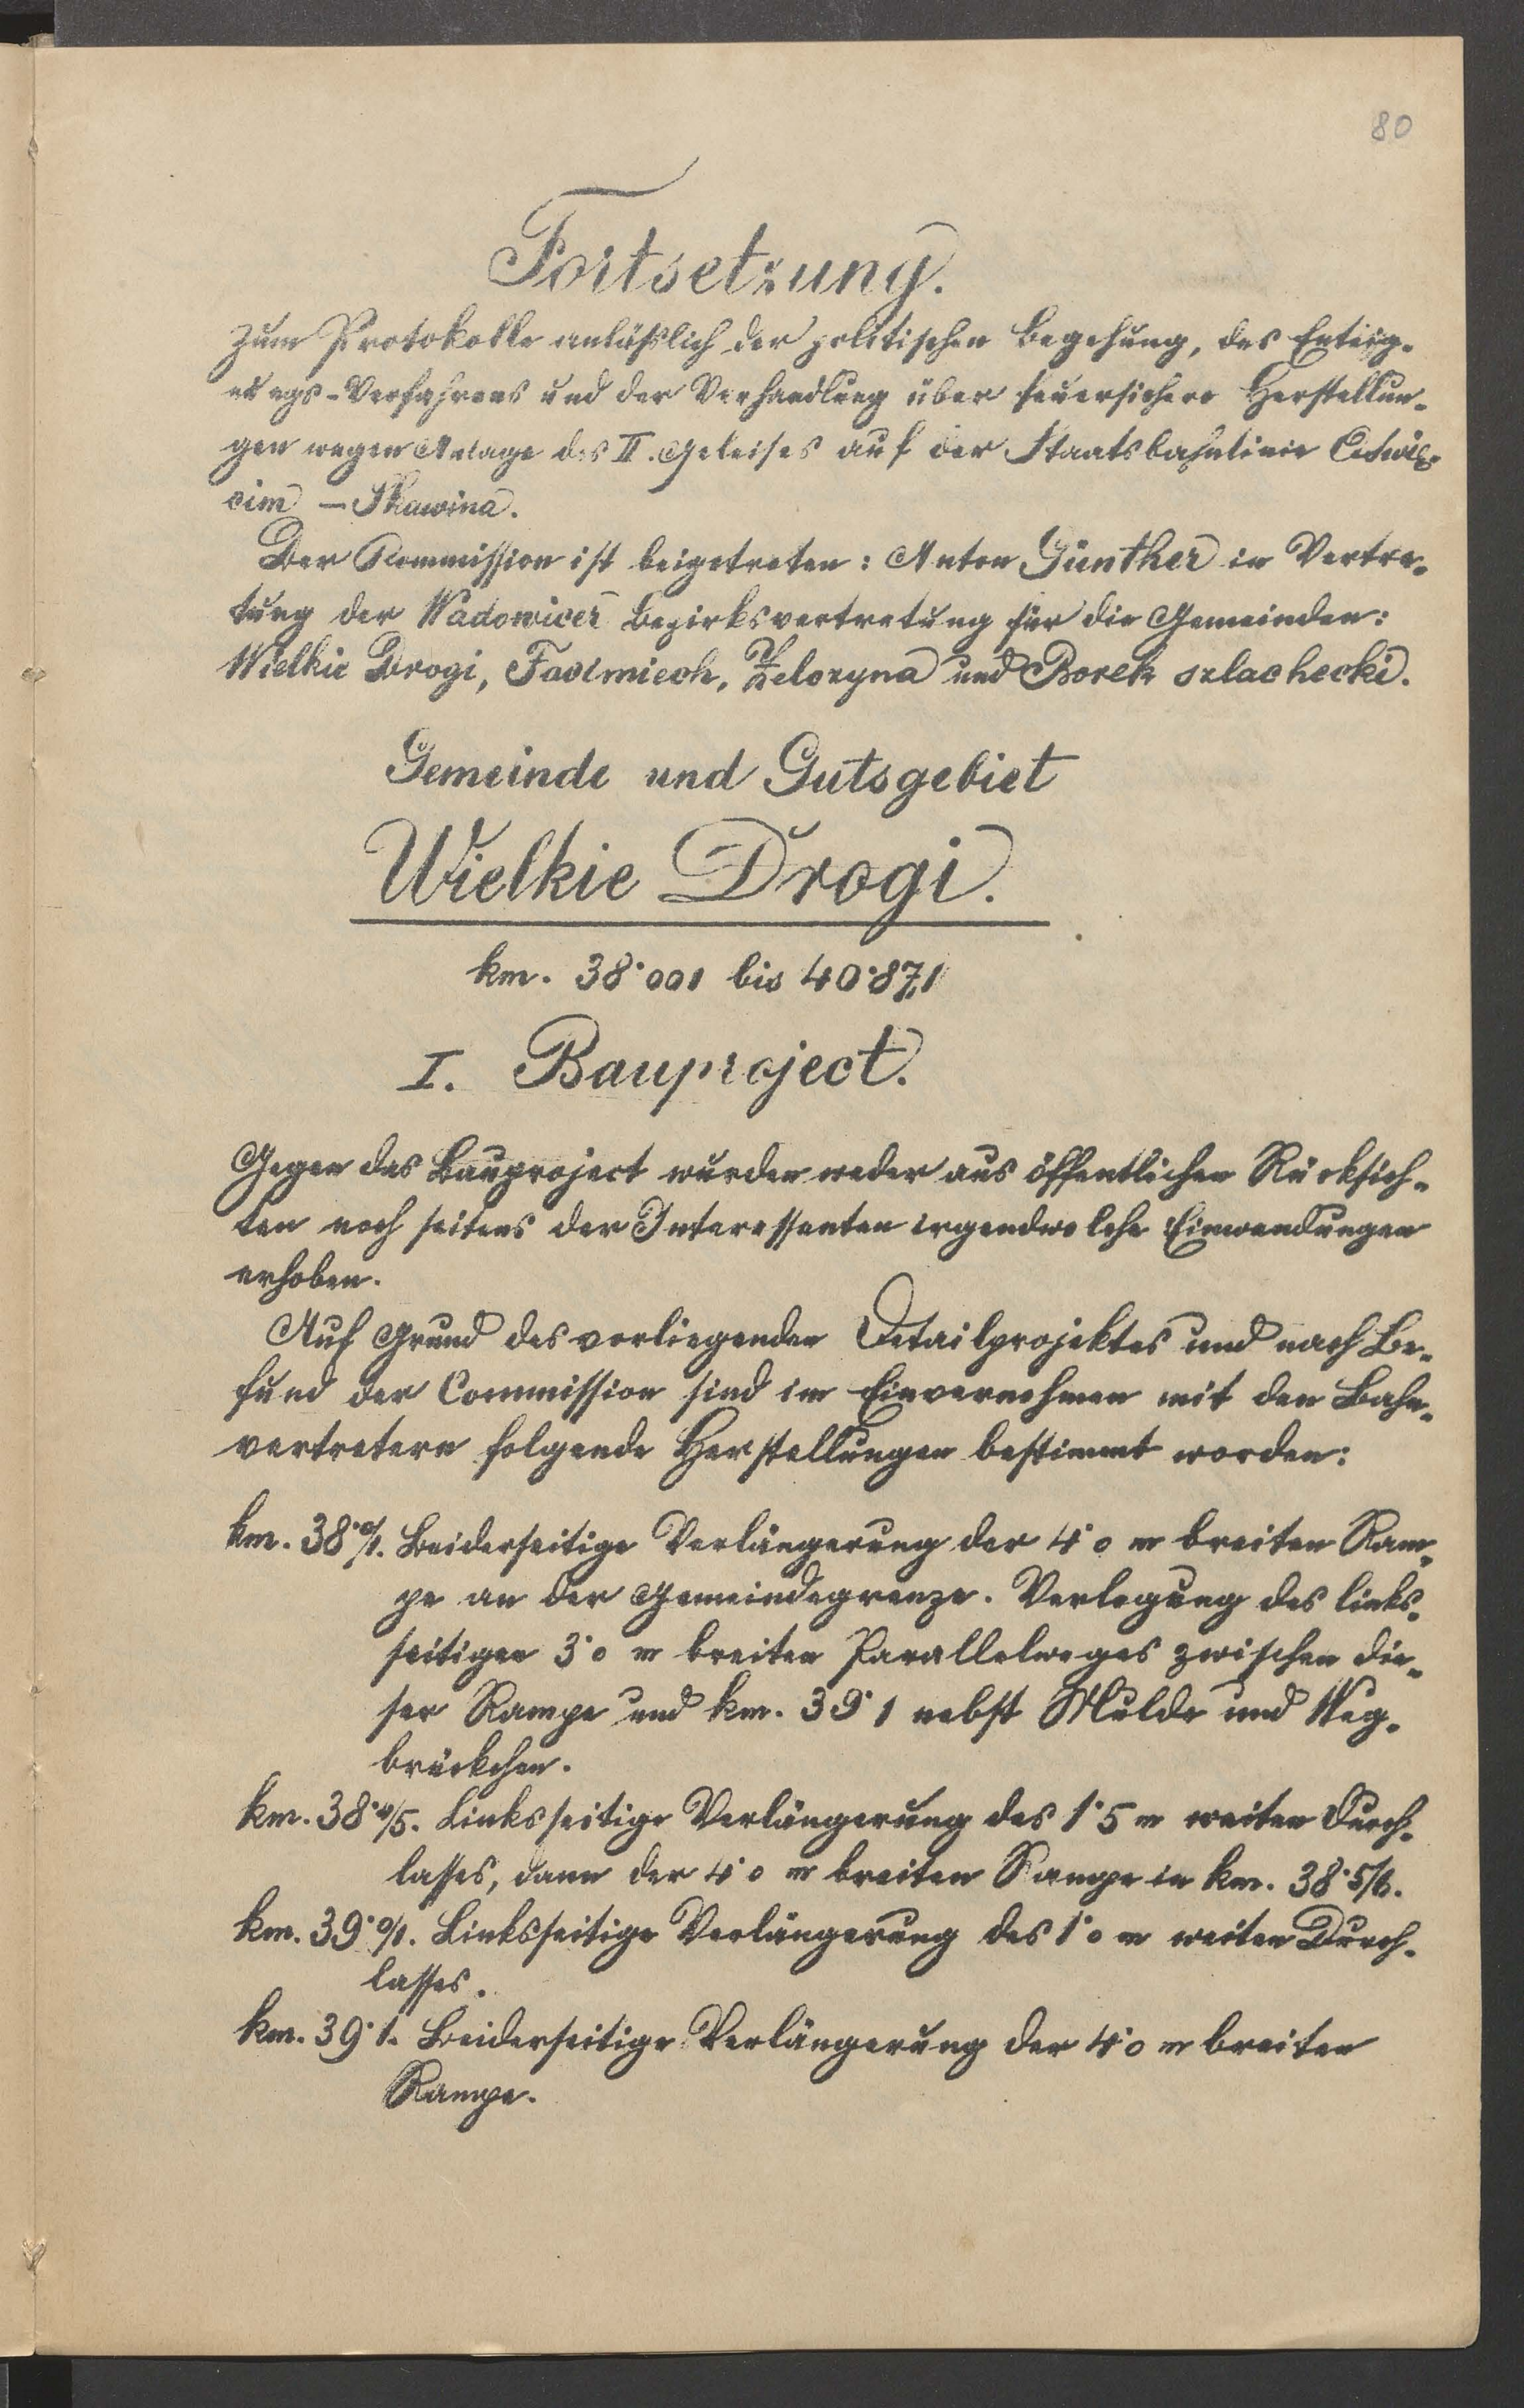 80
Fortsetzung.
zum Protokolle anläßlich der politischen Begehung, des Enteig-
nungs-Verfahrens und der Verhandlung über feuersichere Herstellun-
gen wegen Anlage des II. Geleises auf der Staatsbahnlinie Oświę-
cim – Skawina.
Der Kommission ist beigetreten: Anton Günther in Vertre-
tung der Wadowicer Bezirksvertretung für die Gemeinden:
Wielkie Drogi, Facimiech, Zelczyna und Borek szlachecki.
Gemeinde und Gutsgebiet
Wielkie Drogi.
km. 38·001 bis 40·871
I. Bauproject.
Gegen das Bauproject wurden weder aus öffentlichen Rücksich-
ten noch seitens der Interessenten irgendwelche Einwendungen
erhoben.
Auf Grund des vorliegenden Detailprojektes und nach Be-
fund der Commission sind im Einvernehmen mit den Bahn-
vertretern folgende Herstellungen bestimmt worden:
km. 38·0/1. Beiderseitige Verlängerung der 4·0 m breiten Ram-
pe an der Gemeindegrenze. Verlegung des links-
seitigen 3·0 m breiten Parallelweges zwischen die-
ser Rampe und km. 39·1 nebst Mulde und Weg-
brückchen.
km. 38·4/5. Linksseitige Verlängerung des 1·5 m weiten Durch-
lasses, dann der 4·0 m breiten Rampe in km. 38·5/6.
km. 39·0/1. Linksseitige Verlängerung des 1·0 m weiten Durch-
lasses.
km. 39·1. Beiderseitige Verlängerung der 4·0 m breiten
Rampe.